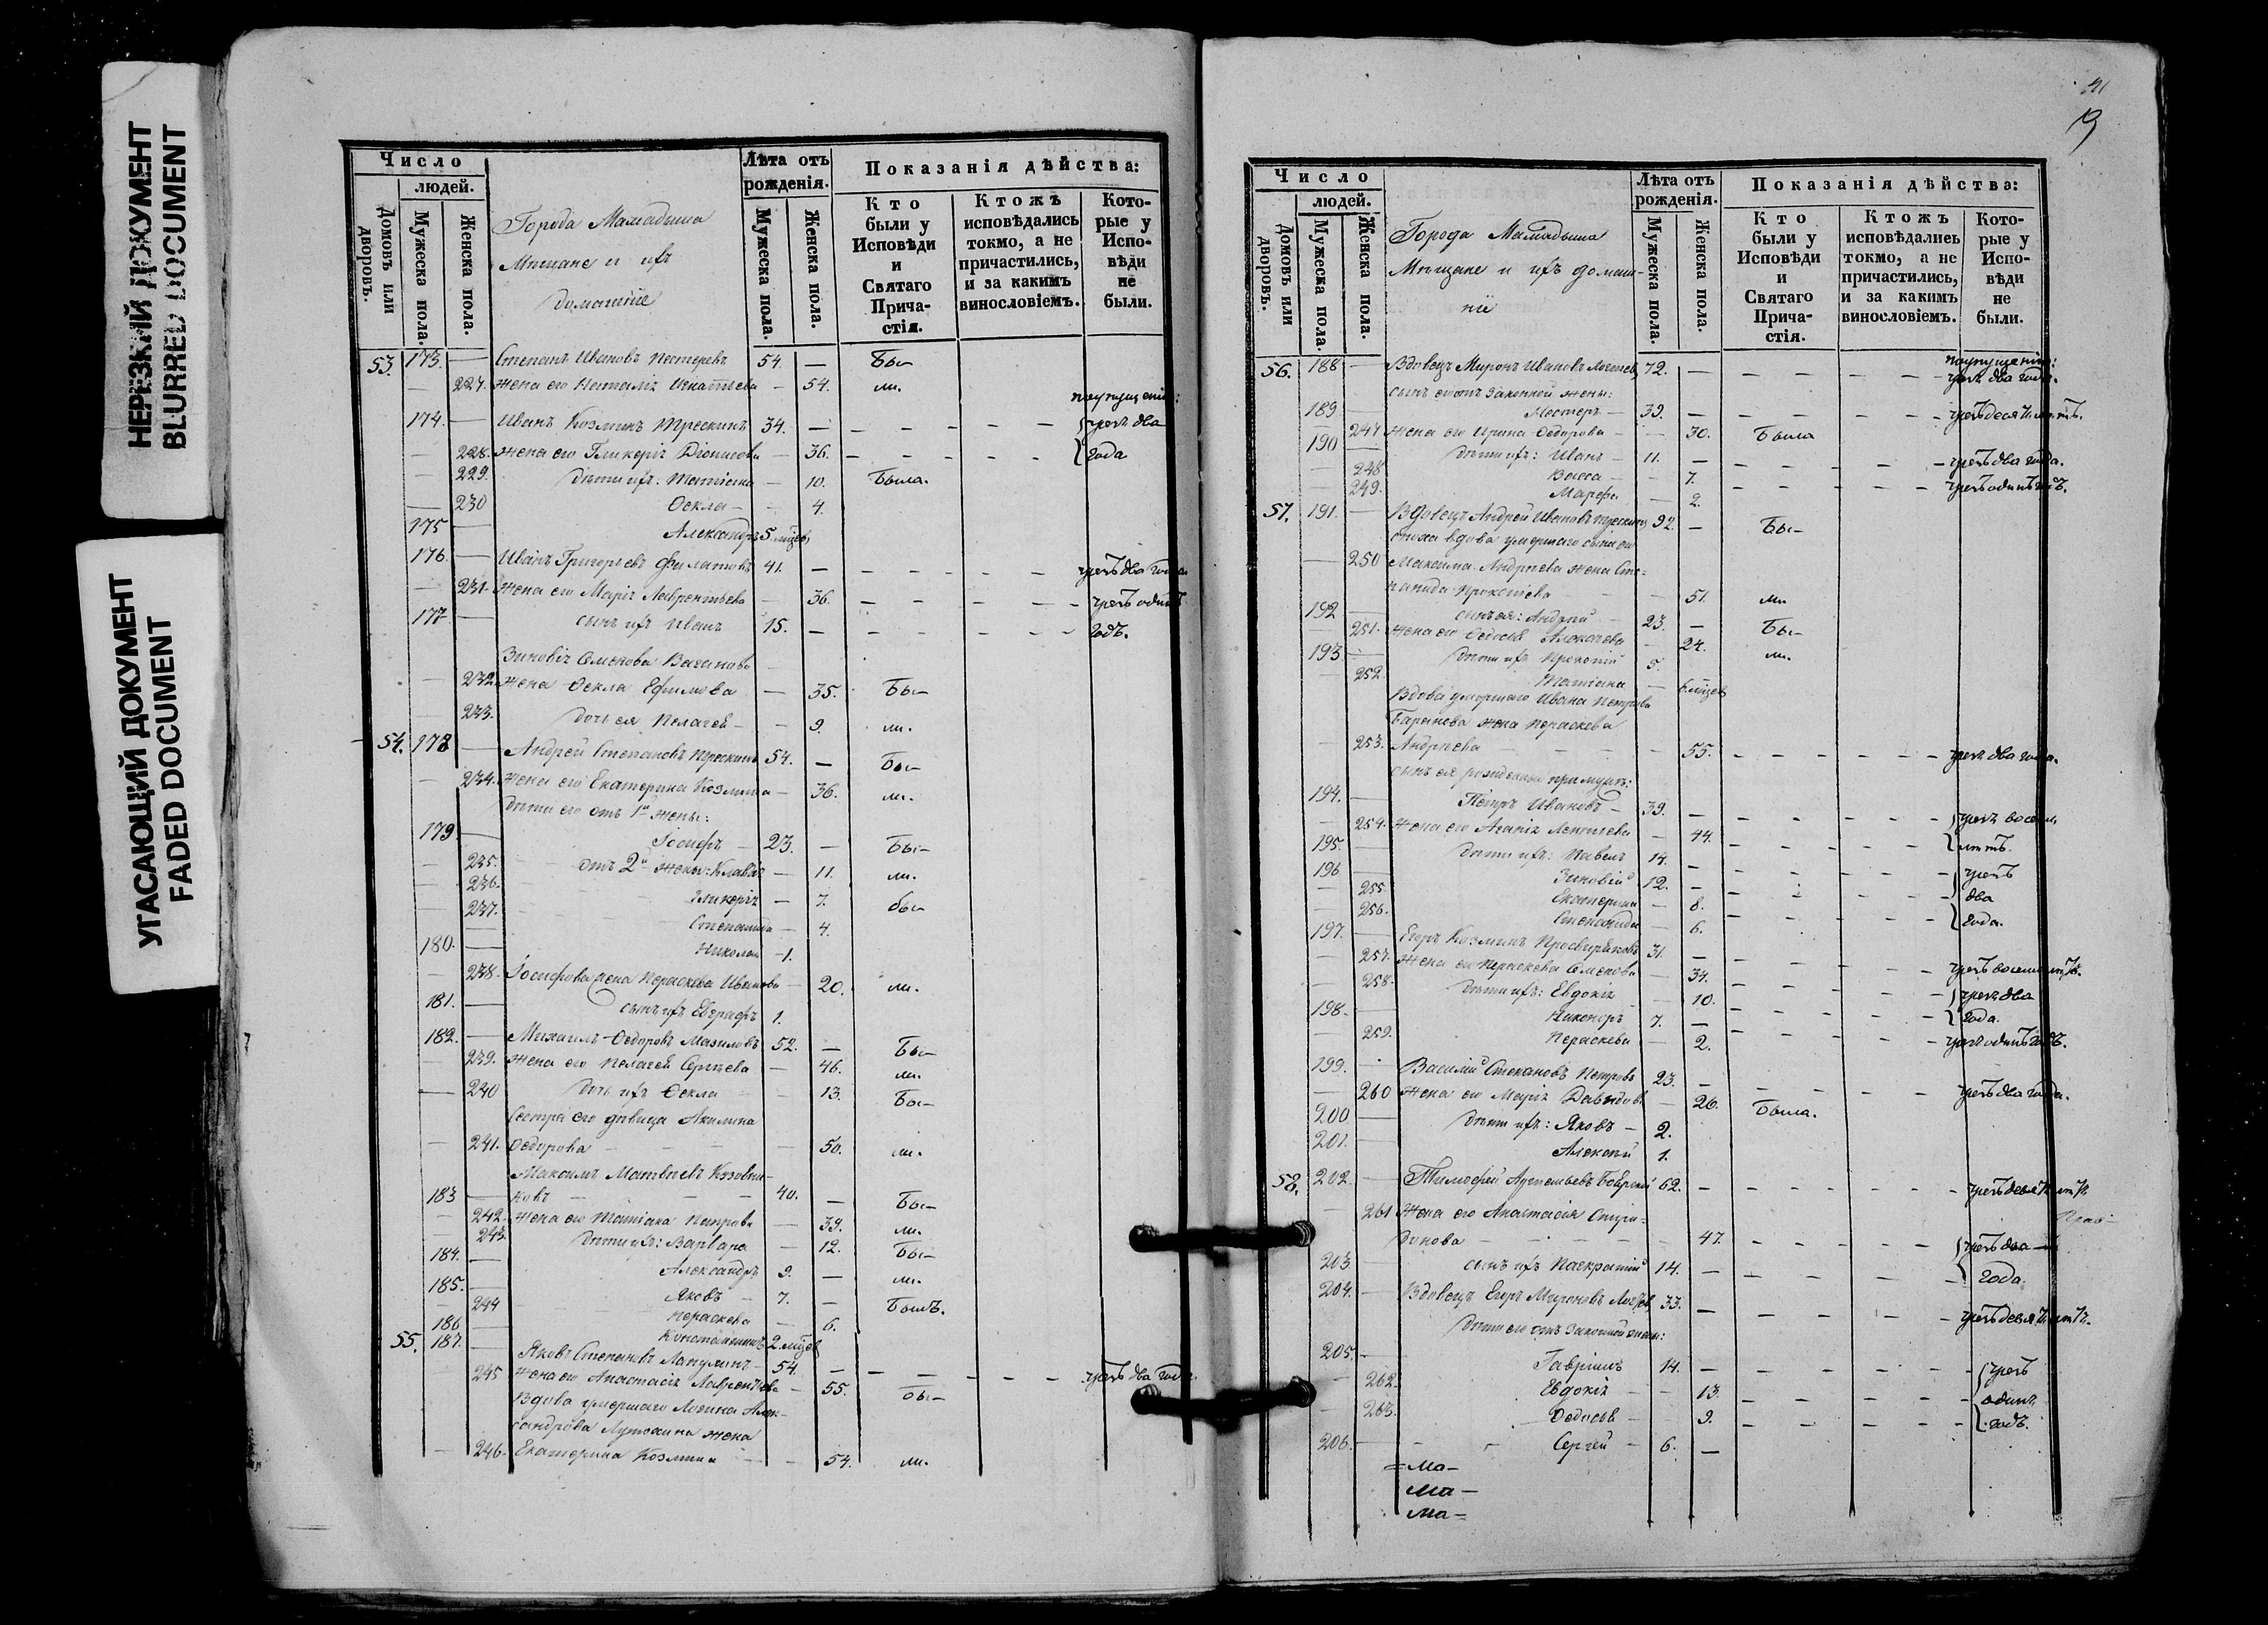 НЕРЕЗКИЙ ДОКУМЕНТ
BLURRED DOCUMENT
УГАСАЮЩИЙ ДОКУМЕНТ
FADED DOCUMENT
Число людей.
Домовъ или дворовъ.
Мужеска пола.
Женска пола.
Города Мамадыша
Мѣщане и ихъ
домашніе
Лѣта отъ рожденія.
Мужеска пола.
Женска пола.
Показанія дѣйства:
Кто были у Исповѣди и Святаго Причастія.
Ктожъ исповѣдались токмо, а не причастились, и за какимъ винословіемъ.
Которые у Исповѣди не были.
53. 173. — Степанъ Ивановъ 54. — Бы-
— 227. жена его Наталія Игнатьева — 54. ли.
174. — Иванъ Козминъ Трескинъ 34. — — — — — — чрезъ два
— 228. жена его Гликерія Діонисова — 36. — — — — — года
— 229. дѣти ихъ: Татіана — 10. Была.
— 230 Ѳекла — — 4.
175 — Александръ 5 мцов
176. — Иванъ Григорьевъ Филатовъ 41. — — — — — — чрезъ два года
— 231. жена его Марія Лаврентьева — 36. — — — — — чрезъ одинъ
177 — сынъ ихъ Иванъ 15. — — — — — — годъ.
Зиновія Семенова —
— 232. жена Ѳекла Ефимова — 35. Бы-
— 233. дочь ея Пелагея — — 9. ли.
54. 178 — Андрей Степановъ Трескинъ 54. — Бы-
— 234. жена его Екатерина Козмина — 36. ли.
дѣти его отъ 1й жены:
179 — Іосифъ — 23. — Бы-
— 235. отъ 2й жены: Клавдія — 11. ли.
— 236. Гликерія — 7. бы-
— 237. Степанида — 4.
180. — Николай — 1.
— 238. Іосифова жена Пераскева Иванова — 20. ли.
181. — сынъ ихъ Евграфъ 1.
182. — Михаилъ Ѳедоровъ 52. — Бы-
— 239. жена его Пелагея Сергѣева — 46. ли.
— 240 дочь ихъ Ѳекла — — 13. Бы-
Сестра его дѣвица Акилина
— 241. Ѳедорова — — — 50. ли.
Максимъ Матвѣевъ
183 — ковъ — — — 40. — Бы-
— 242. жена его Татіана Петрова — 39. ли.
— 243. дѣти ихъ: Варвара — 12. Бы-
184. — Александръ 9. — ли.
185. — Яковъ — 7. — Былъ.
— 244 Пераскева — 6.
186 — Константинъ 2. мцов
55. 187. — Яковъ Степановъ 54. — — — — — — чрезъ два года.
— 245 жена его Анастасія Лаврентьева — 55. бы-
Вдова умершаго Алек-
сандрова жена
— 246. Екатерина Козмина — — 54. ли.
19
Число людей.
Домовъ или дворовъ.
Мужеска пола.
Женска пола.
Города Мамадыша
Мѣщане и ихъ домаш-
ніе
Лѣта отъ рожденія.
Мужеска пола.
Женска пола.
Показанія дѣйства:
Кто были у Исповѣди и Святаго Причастія.
Ктожъ исповѣдались токмо, а не причастились, и за какимъ винословіемъ.
Которые у Исповѣди не были.
56. 188 — Вдовецъ Миронъ Ивановъ 72. — — — — — — чрезъ два года.
сынъ его отъ законной жены:
189 — Несторъ — 39. — — — — — —
— 247 жена его Ирина Ѳедорова — — 30. Была
190 — дѣти ихъ: Иванъ — 11. — — — — — — чрезъ два года.
— 248 Васса — — 7. — — — — — чрезъ одинъ годъ.
— 249. Марѳа — 2.
57. 191. — Вдовецъ Андрей Ивановъ Трескинъ 92. — Бы-
сноха вдова умершаго сына его
— 250 Максима Андрѣева жена Сте-
панида Прокопіева — — — 51. ли
192 — сынъ ея: Андрей — 23. — Бы-
— 251. жена его Ѳедосья Алексѣева — 24. ли.
193 — дѣти ихъ Прокопій 5.
— 252. Татіана — 6 мцов
Вдова умершаго Ивана Петрова
жена Пераскева
— 253. Андрѣева — — — — 55. — — — — — чрезъ два года.
сынъ ея рожденный при мужѣ:
194. — Петръ Ивановъ — 39. — — — — — — чрезъ восемь
— 254. жена его Агапія — 44. — — — — — лѣтъ.
195. — дѣти ихъ: Павелъ 14. — — — — — — чрезъ
196 — Зиновій 12. — — — — — — два
— 255 Екатерина — 8. — — — — — года.
— 256. Степанида — 6.
197. — Егоръ Козминъ 31. — — — — — —
— 257. жена его Пераскева Семенова — 34. — — — — — чрезъ два
— 258. дѣти ихъ: Евдокія — 10. — — — — — года.
198. — Никоноръ 7. — — — — — — чрезъ одинъ годъ.
— 259. Пераскева — 2.
199. — Василій Степановъ Петровъ 23. — — — — — — чрезъ два года.
— 260 жена его Марія Давидова — 26. Была.
200 — дѣти ихъ: Яковъ — 2.
201. — Алексѣй 1.
58. 202. — Тимофей 62. — — — — — —
— 261 жена его Анастасія Спири-
донова — — — — — 47. — — — — — чрезъ два
203 — сынъ ихъ Панкратій 14. — — — — — — года.
204. — Вдовецъ Егоръ Мироновъ 33. — — — — — —
дѣти его отъ законной жены:
205. — Гавріилъ 14. — — — — — — чрезъ
— 262. Евдокія — — 13. — — — — — одинъ
— 263. Ѳедосья — — 9. — — — — — годъ.
206. — — Сергей — 6. —
= Ма-
Ма-
Ма=